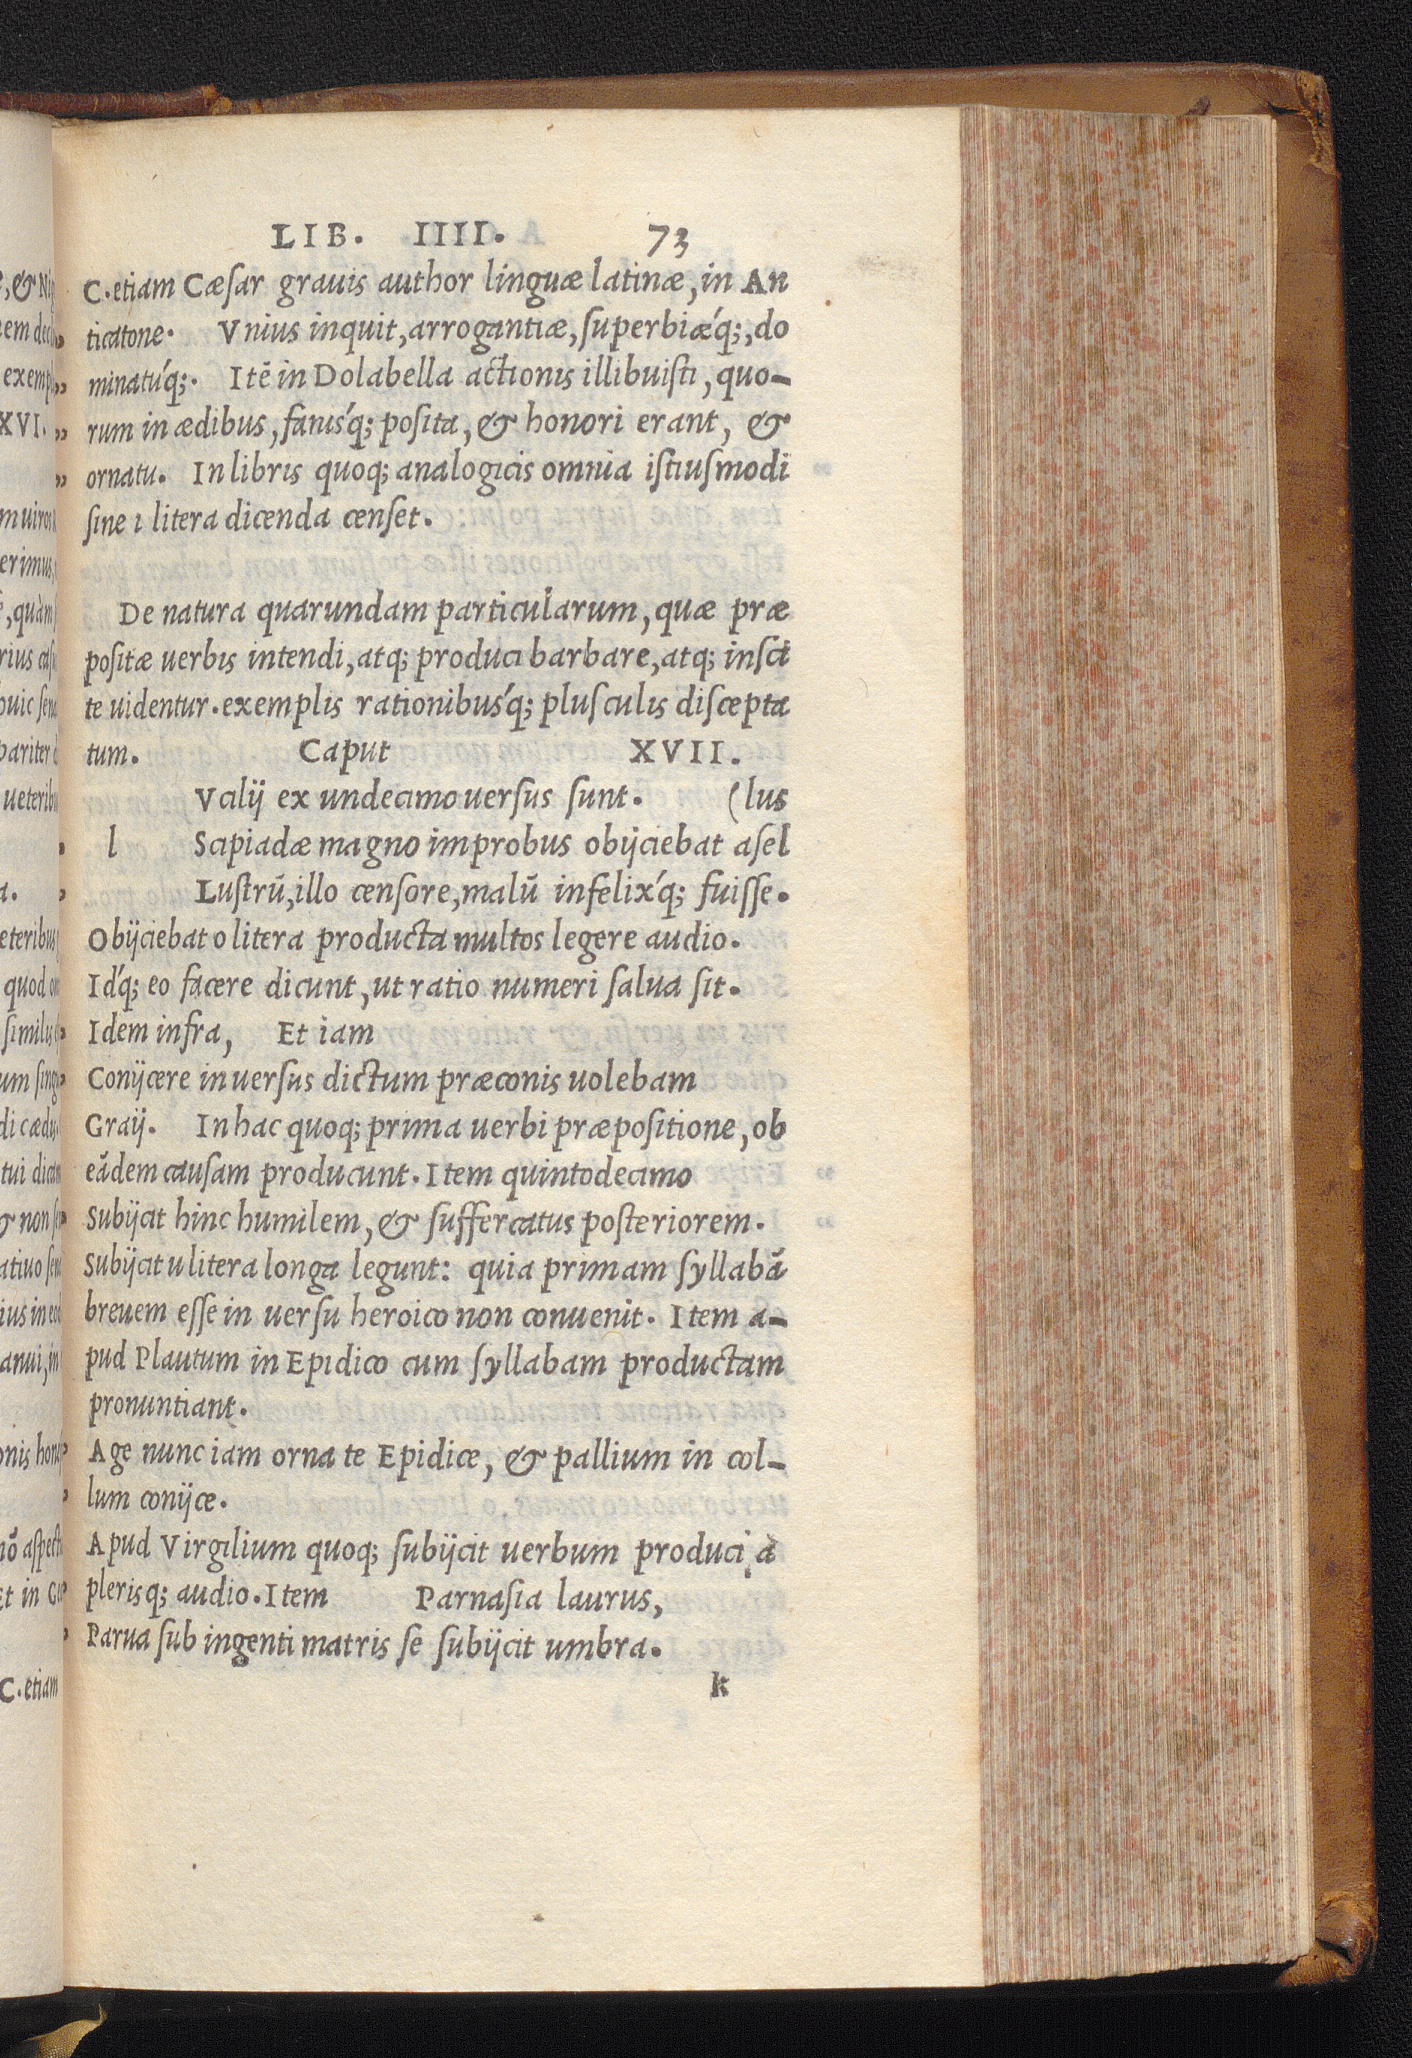 LIB. IIII. 73
C. etiam Cæſar grauis author linguæ latinæ, in An
ticatone. Vnius inquit, arrogantiæ, ſuperbiæ´q;, do
minatu´q;. Itē in Dolabella actionis illibuiſti, quo-
rum in ædibus, fanis´q; poſita, & honori erant, &
ornatu. In libris quoq; analogicis omnia iſtiuſmodi
ſine i litera dicenda cenſet.
De natura quarundam particularum, quæ præ
poſitæ uerbis intendi, atq; produci barbare, atq; inſci
te uidentur. exemplis rationibus´q; pluſculis diſcepta
tum. Caput XVII.
Vcilij ex undecimo uerſus ſunt. (lus
l Scipiadæ magno improbus obijciebat aſel
Luſtrū, illo cenſore, malū infelix´q; fuiſſe.
Obijciebat o litera producta multos legere audio.
Id´q; eo facere dicunt, ut ratio numeri ſalua ſit.
Idem infra, Et iam
Conijcere in uerſus dictum præconis uolebam
Graij. In hac quoq; prima uerbi præpoſitione, ob
eādem cauſam producunt. Item quintodecimo
Subijcit hinc humilem, & ſuffercatus poſteriorem.
Subijcit u litera longa legunt: quia primam ſyllabā
breuem eſſe in uerſu heroico non conuenit. Item a-
pud Plautum in Epidico cum ſyllabam productam
pronuntiant.
Age nunc iam orna te Epidice, & pallium in col-
lum conijce.
Apud Virgilium quoq; ſubijcit uerbum produci à
plerisq; audio. Item Parnaſia laurus,
Parua ſub ingenti matris ſe ſubijcit umbra.
k